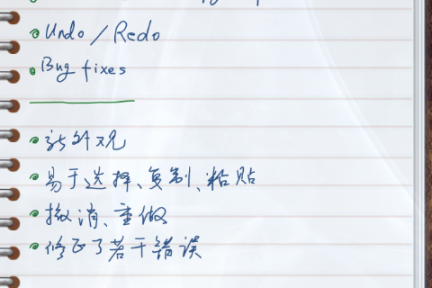 Undo / Redo
Bug fixes
新外观
易于选择、复制、粘贴
撤消、重做
修正了若干错误